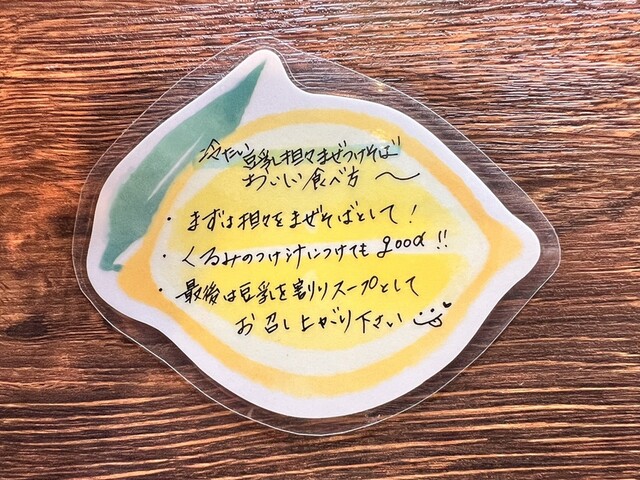 冷たい豆乳担々まぜつけそば
おいしい食べ方〜
・まずは担々をまぜそばとして！
・くるみのつけ汁につけてもgood!!
・最後は豆乳を割りスープとして
お召し上がり下さい